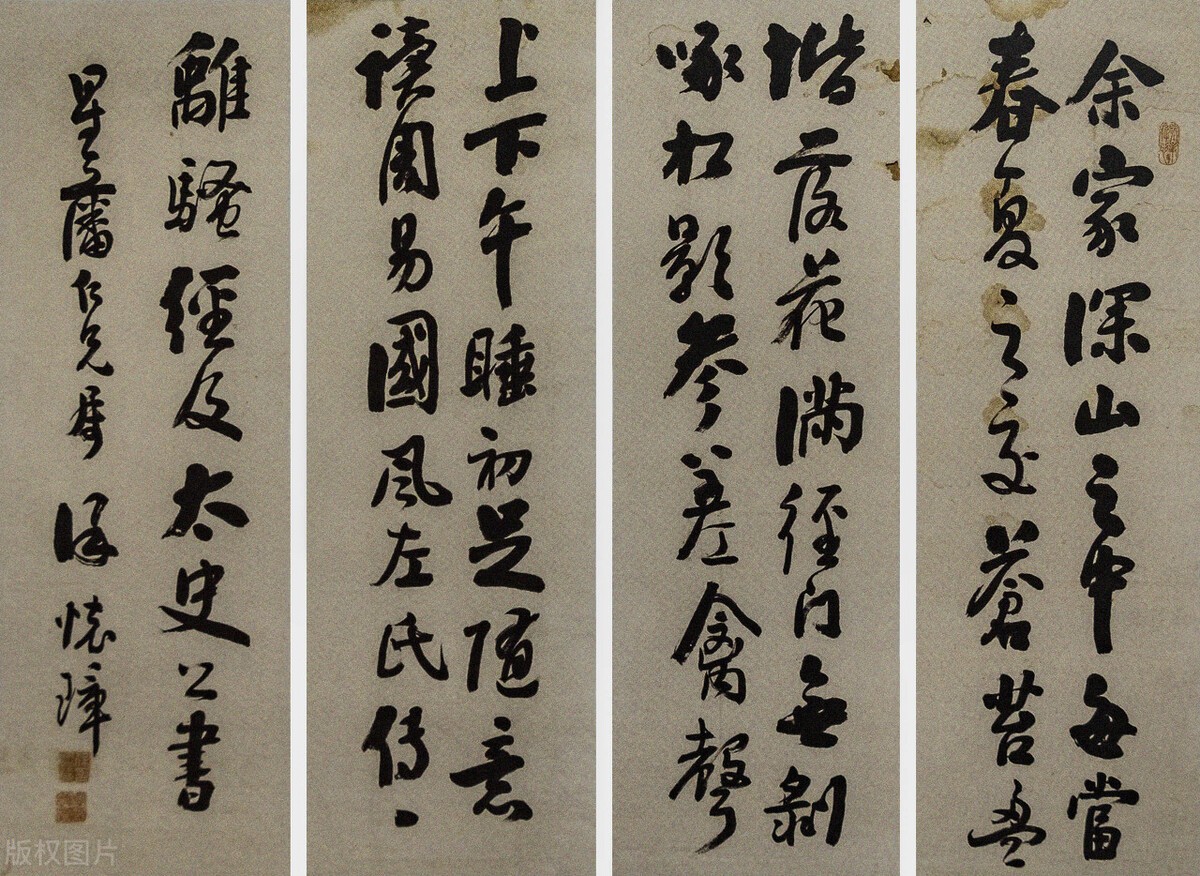 余家深山之中每當
春夏之交蒼苔盈
堦落花滿徑門無剝
啄松影參差禽聲
上下午睡初足隨意
讀周易國風左氏傳、
離騷經及太史公書
星藩仁兄屬
懷璋
版权图片